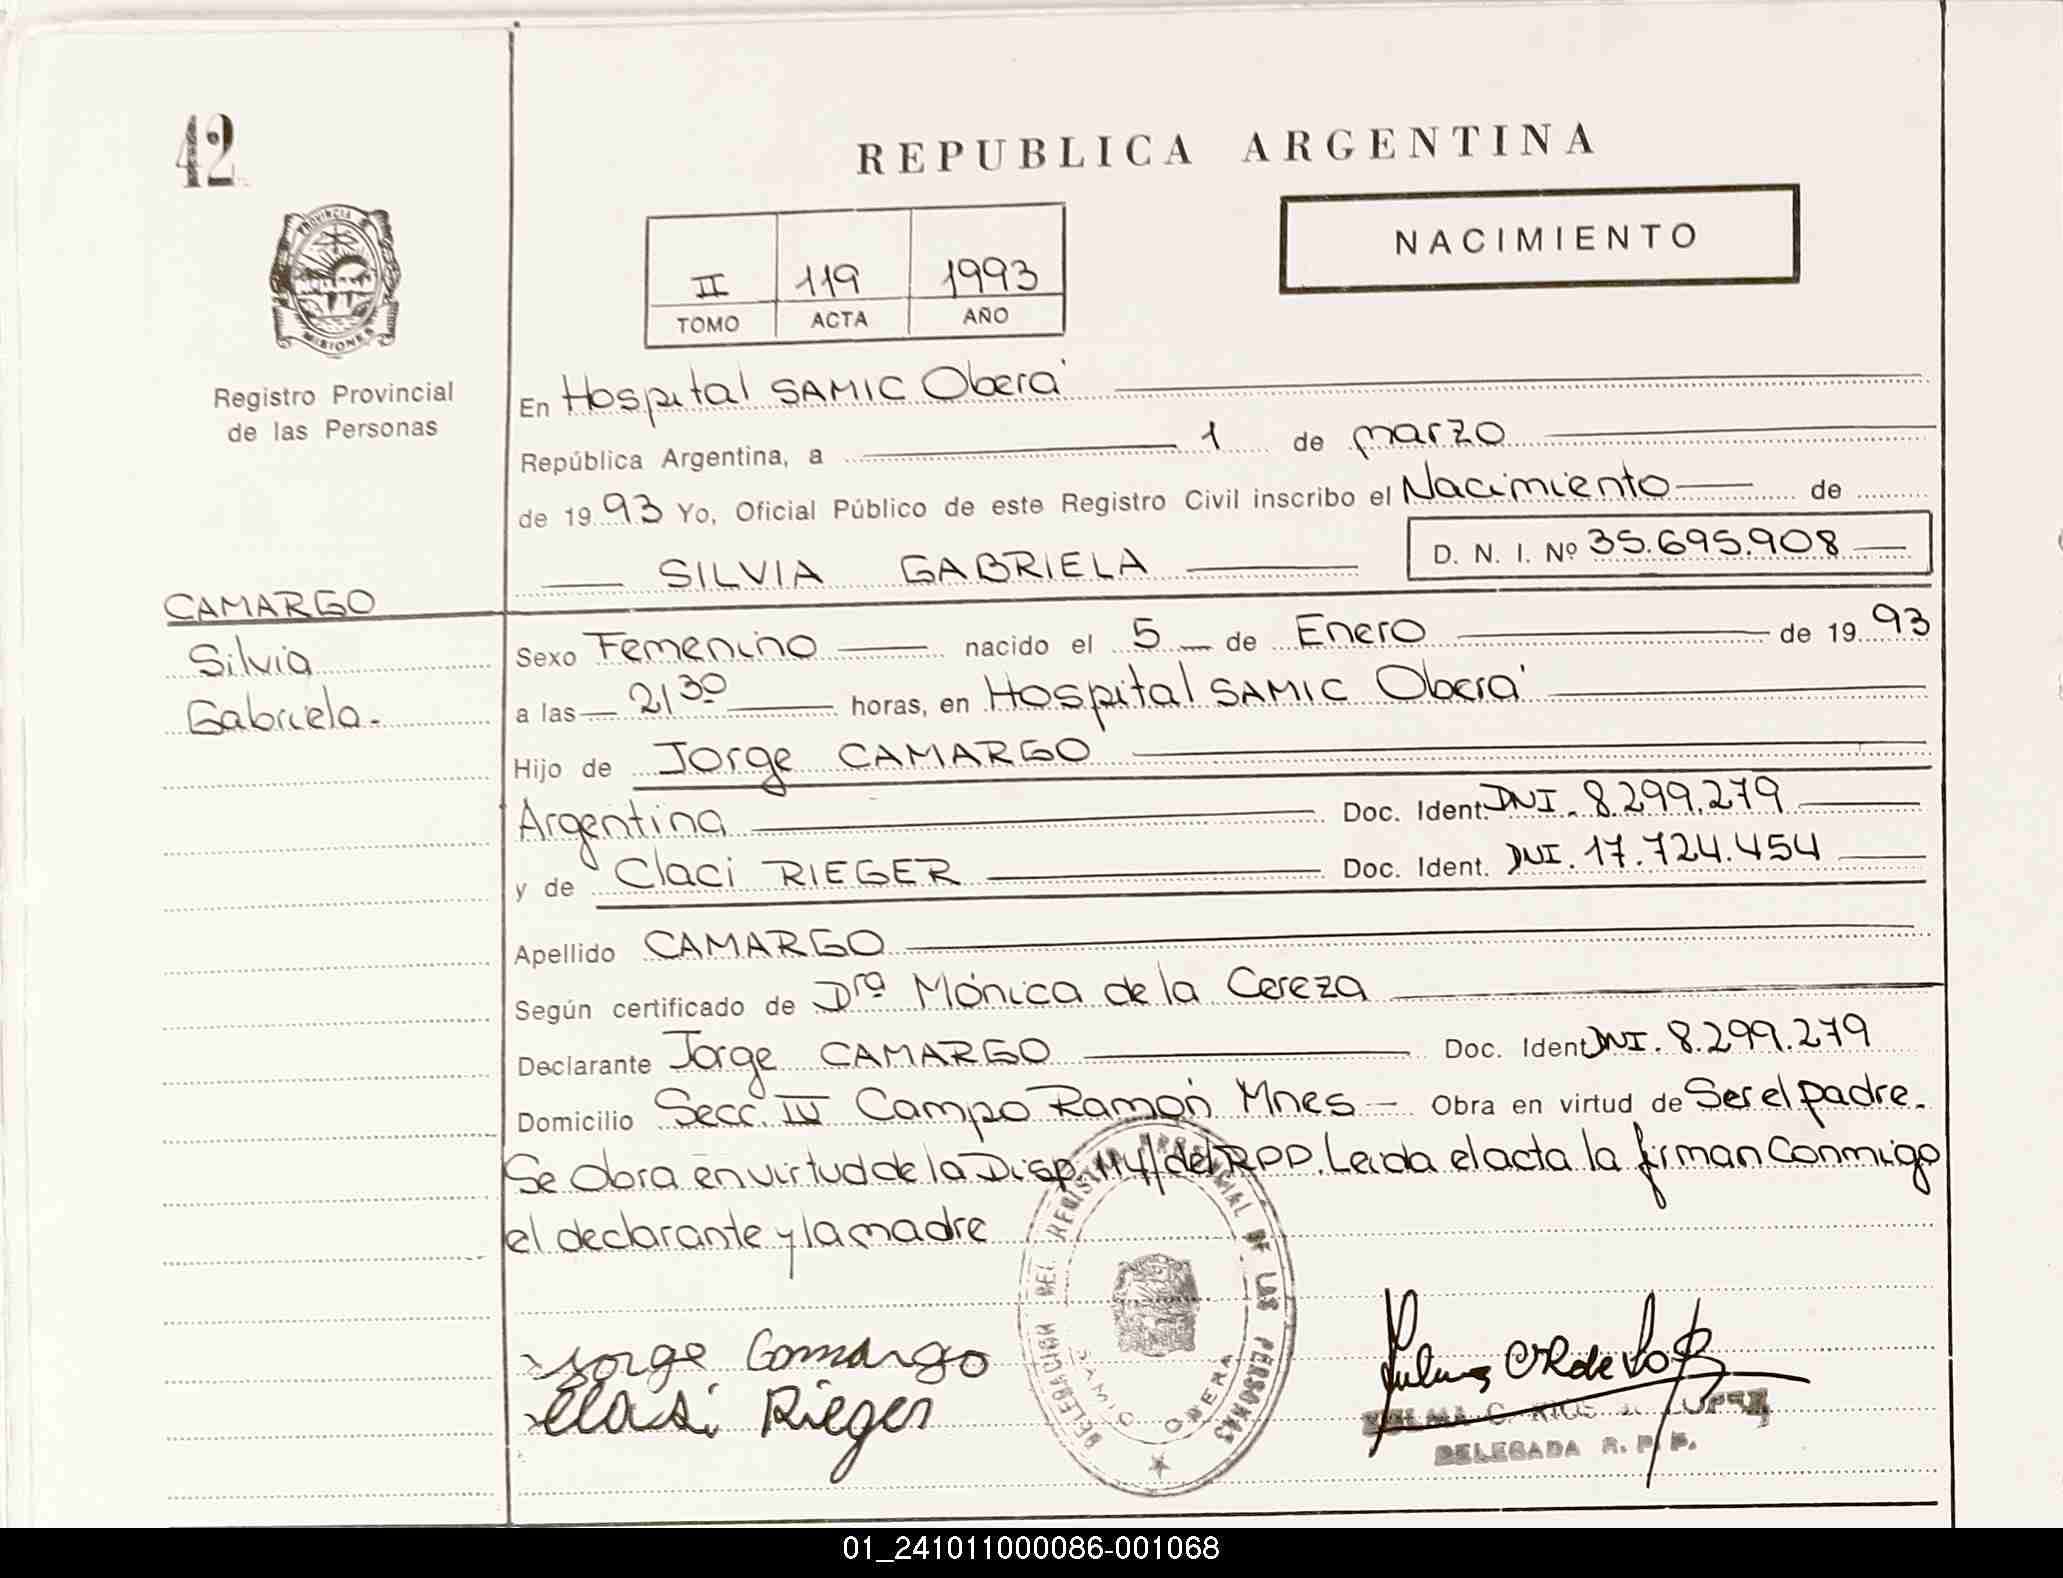 42
REPUBLICA ARGENTINA
NACIMIENTO
II 119 1993
TOMO ACTA AÑO
PROVINCIA
MISIONES
Registro Provincial
de las Personas
En Hospital SAMIC Oberá
República Argentina, a 1 de marzo
de 1993 Yo, Oficial Público de este Registro Civil inscribo el Nacimiento de
SILVIA GABRIELA D. N. I. Nº 35.695.908
CAMARGO
Silvia
Gabriela.
Sexo Femenino nacido el 5 de Enero de 1993
a las 21 30 horas, en Hospital SAMIC Oberá
Hijo de Jorge CAMARGO
Argentina Doc. Ident. DNI. 8.299.279
y de Claci RIEGER Doc. Ident. DNI. 17.724.454
Apellido CAMARGO
Según certificado de Dra Mónica de la Cereza
Declarante Jorge CAMARGO Doc. Ident DNI. 8.299.279
Domicilio Secc. IV Campo Ramón Mnes Obra en virtud de Ser el padre.
Se obra en virtud de la Disp. 114/del RPP. Leida el acta la firman Conmigo
el declarante y la madre
DELEGACION DEL REGISTRO PROVINCIAL DE LAS PERSONAS
SAMIC OBERA
Jorge Camargo
Clasi Rieger
DELEGADA R. P. P.
01_241011000086-001068